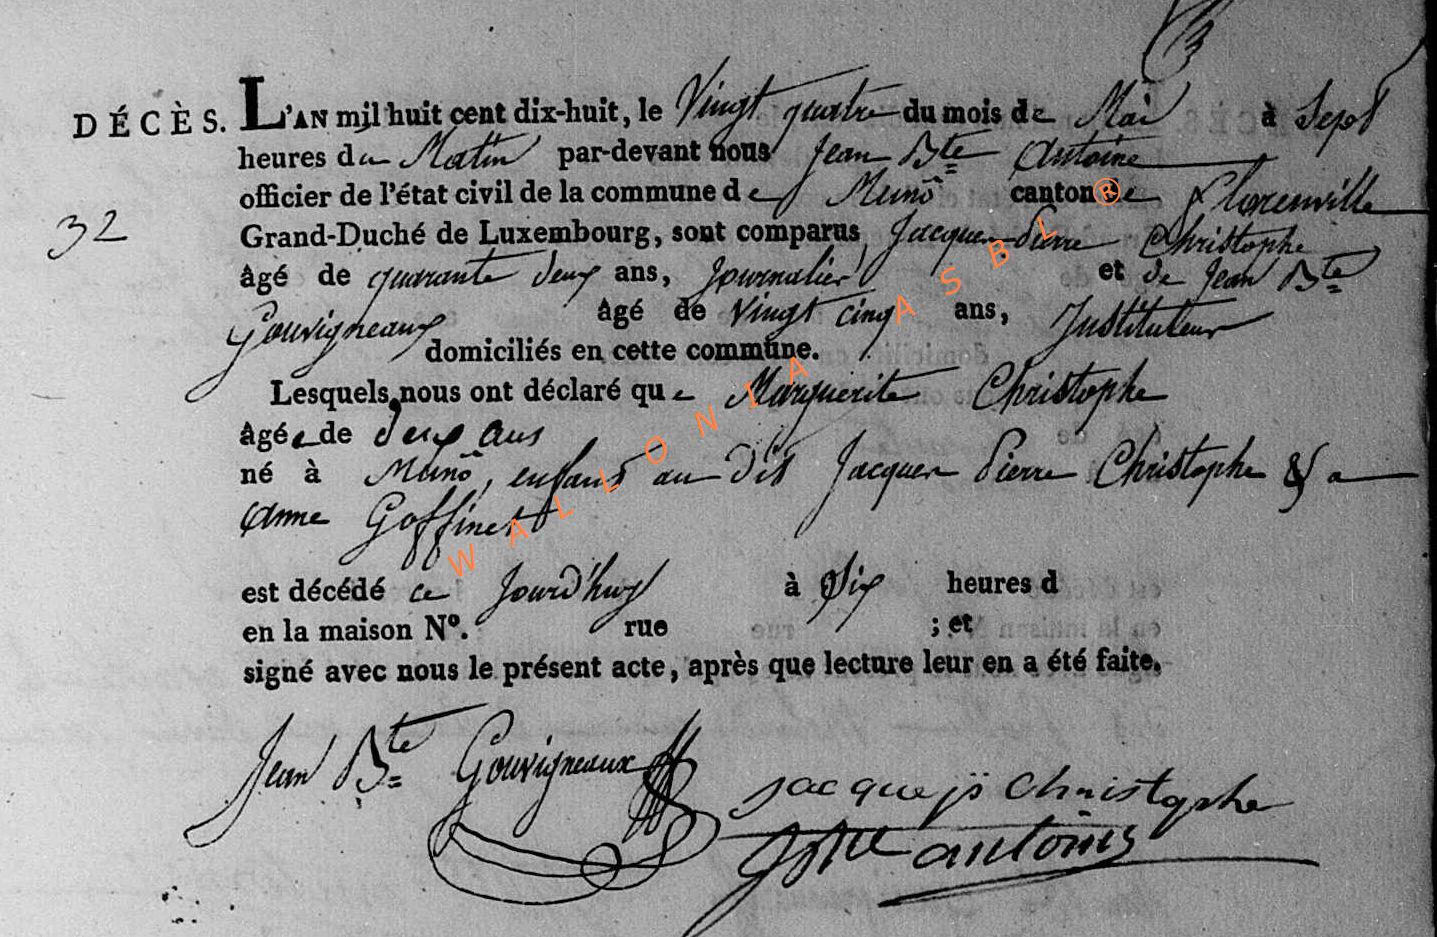 DÉCÈS. L'AN mil huit cent dix-huit, le Vingt quatre du mois de Mai à Sept
heures du Matin par-devant nous Jean Bte Antoine
officier de l'état civil de la commune de Munô canton de Florenville
32
Grand-Duché de Luxembourg, sont comparus Jacques Pierre Christophe
âgé de quarante deux ans, Journalier et de Jean Bte
Gouvigneaux âgé de Vingt cinq ans, Instituteur
domiciliés en cette commune.
Lesquels nous ont déclaré que Marguerite Christophe
âgée de deux ans
né à Munô, enfant au dit Jacques Pierre Christophe & a
Anne Goffinet
est décédé ce Jourd'huy à Six heures d
en la maison N°. rue ; et
signé avec nous le présent acte, après que lecture leur en a été faite.
Jean Bte Gouvigneaux
jacque jp christophe
JBte antoine
WALLONIA ASBL ®